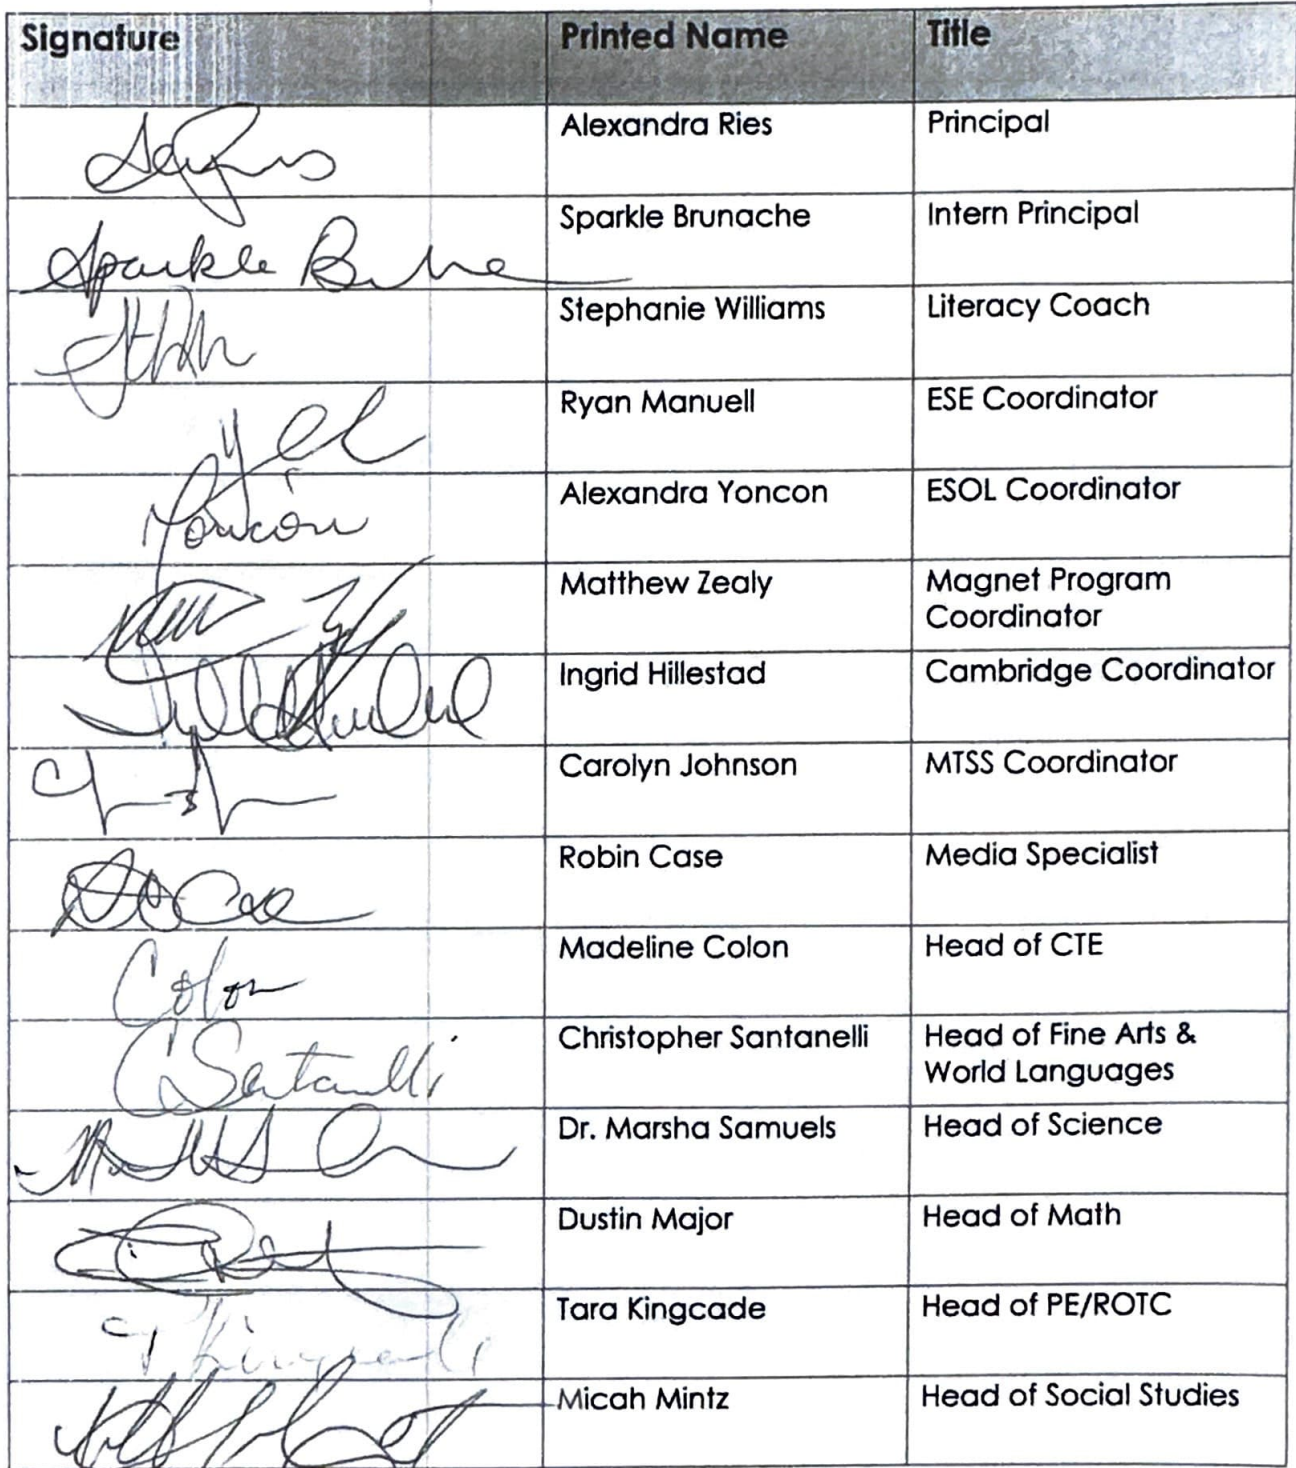 Signature Printed Name Title
Alexandra Ries Principal
Sparkle Sparkle Brunache Intern Principal
Stephanie Williams Literacy Coach
Ryan Manuell ESE Coordinator
Yoncón Alexandra Yoncon ESOL Coordinator
Matthew Zealy Magnet Program
Coordinator
Ingrid Hillestad Cambridge Coordinator
Carolyn Johnson MTSS Coordinator
Case Robin Case Media Specialist
Colon Madeline Colon Head of CTE
C Santanelli Christopher Santanelli Head of Fine Arts &
World Languages
Dr. Marsha Samuels Head of Science
Dustin Major Head of Math
Tara Kingcade Head of PE/ROTC
Micah Mintz Head of Social Studies